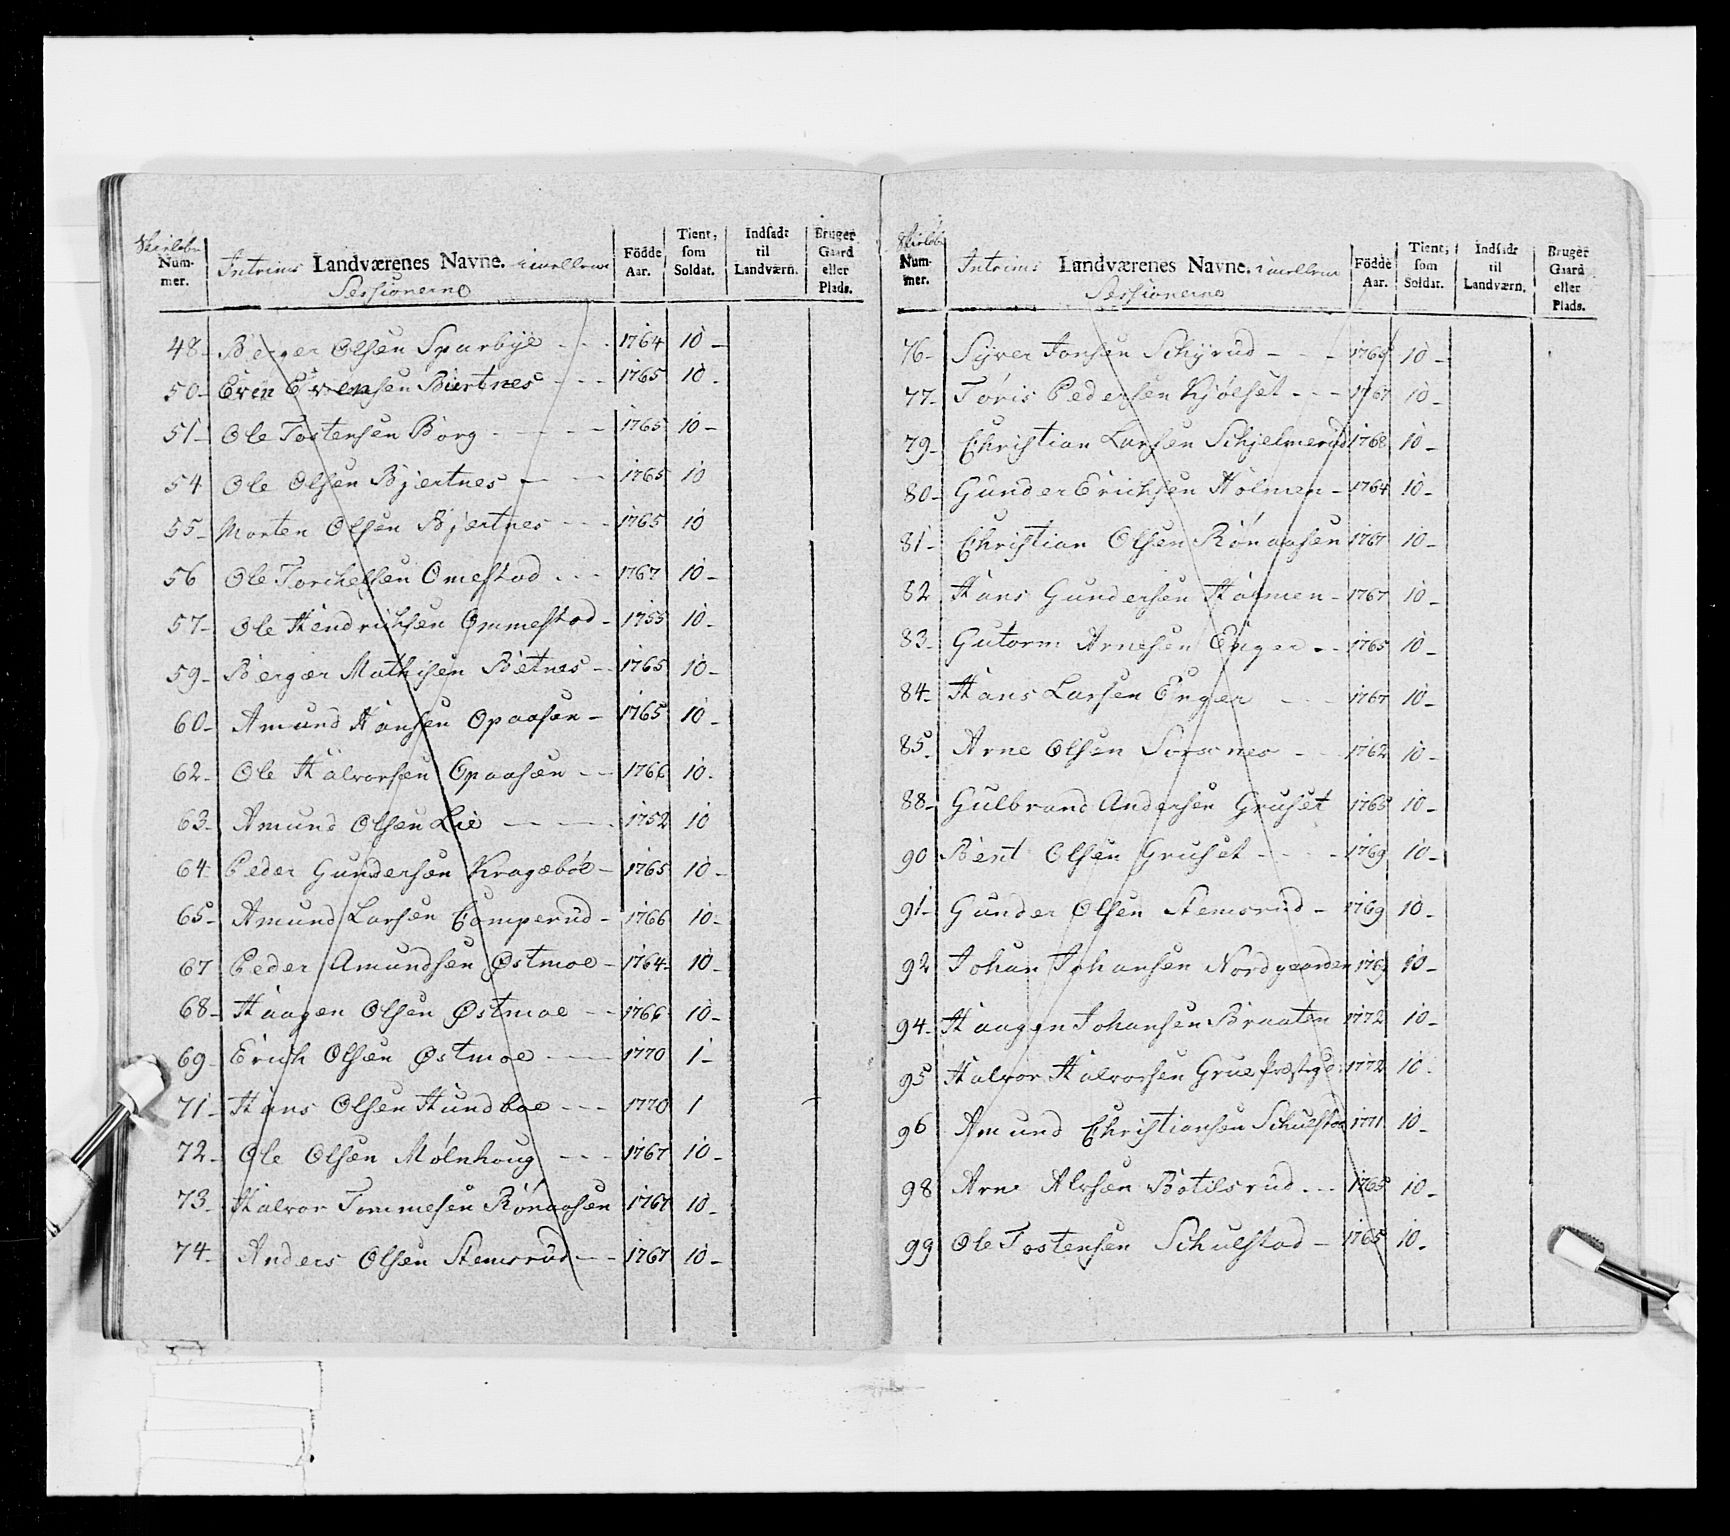 Num-
mer.
Intrims Landværenes Navne. imellem
Sessionerne
Födde
Aar.
Tient,
som
Soldat.
Indsadt
til
Landværn.
Bruger
Gaard
eller
Plads.
48- Berger Olsen Sparbye - - - 1764 10 -
50- Even Evensen Biertnes - - - 1765 10 -
51- Ole Tostensen Borg - - - - 1765 10 -
54 Ole Olsen Bjertnes - - - 1765 10
55- Morten Olsen Bjertnes - - - 1765 10
56 Ole Torchelsen Omestad - - - 1767 10 -
57- Ole Hendrichsen Ommestad - 1755 10 -
59- Berger Mathisen Betnes - - 1765 10 -
60- Amund Hansen Opaasen - 1765 10 -
62- Ole Halvorsen Opaasen - - 1766 10 -
63- Amund Olsen Lie - - - 1752 10
64- Peder Gundersen Kragebøe - 1765 10 -
65- Amund Larsen Camperud - 1766 10 -
67 Peder Amundsen Østmoe - 1764 - 10 -
68- Haagen Olsen Østmoe - - 1766 10 -
69- Erich Olsen Østmoe - - - 1770 1 -
71- Hans Olsen Hundboe - - - 1770 1
72- Ole Olsen Mølnhoug - - - 1767 10 -
73- Halvor Tommesen Rønaasen 1767 10 -
74- Anders Olsen Stemsrud - - 1767 10 -
Num-
mer.
Intrims Landværenes Navne. imellem
Sessionerne
Födde
Aar.
Tient,
som
Soldat.
Indsadt
til
Landværn.
Bruger
Gaard
eller
Plads.
76- Syver Jonsen Schyrud - - - 1769 10 -
77- Tøris Pedersen Kjølset - - - 1767 10 -
79- Christian Larsen Schjelmerud 1768 10 -
80- Gunder Erichsen Holmen - 1764 10 -
81- Christian Olsen Rønaasen 1767 10 -
82 Hans Gundersen Holmen - 1767 10 -
83- Gutorm Arnesen Enger - - 1765 10 -
84- Hans Larsen Enger - - - 1767 10 -
85- Arne Olsen - 1762 10 -
88- Gulbrand Andersen Gruset 1765 10 -
90 Bent Olsen Gruset - - - - 1769 10 -
91- Gunder Olsen Stemsrud - 1769 10 -
92 Johan Johansen Nordgaarden 10 -
94- Haagen Johansen Braaten 1772 10 -
95 Halvor Halvorsen Grue Præstgd: 1772 10 -
96 Amund Christiansen Schulstad 1771 10 -
98 Arne Alvsen Botilsrud - - - 1765 10 -
99 Ole Tostensen Schulstad - 1765 10 -